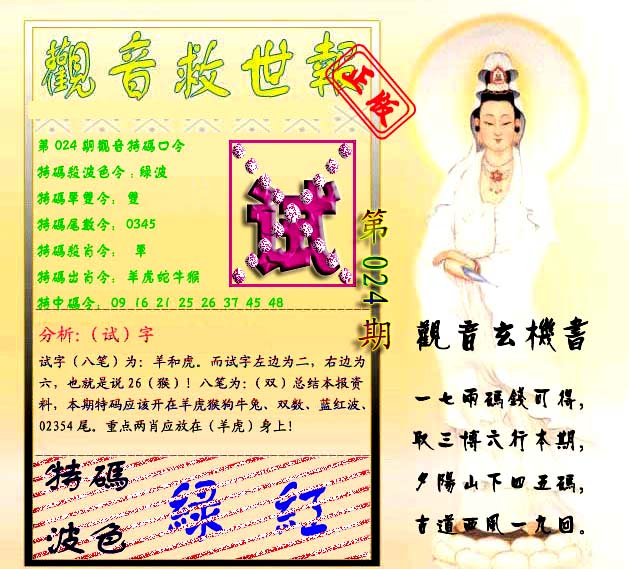 觀音救世報
正版
第024期觀音特碼口令
特碼殺波色令：綠波
特碼單雙令： 雙
特碼尾數令： 0345
特碼殺肖令： 單
特碼出肖令： 羊虎蛇牛猴
特中碼令： 09 16 21 25 26 37 45 48
试
第024期
分析:（试）字
试字（八笔）为：羊和虎。而试字左边为二，右边为
六，也就是说 26（猴）！八笔为：（双）总结本报资
料，本期特码应该开在羊虎猴狗牛兔、双数、蓝红波、
02354 尾。重点两肖应放在（羊虎）身上！
特碼
波色
綠 紅
觀音玄機書
一七兩碼錢可得，
取三博六行本期，
夕陽山下四五碼，
古道西風一九回。